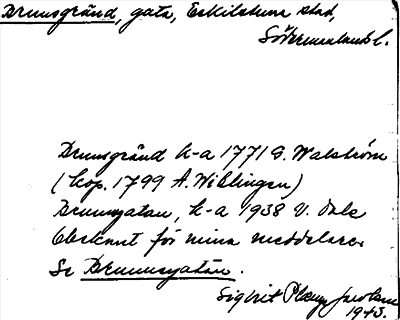 Brunnsgränd, gata, Eskilstuna stad,
Södermanlands l.
Brunnsgränd k-a 1771 G. Walström
(kop. 1799 A. Wiblingen)
Brunnsgatan, k-a 1938 V. Dale
Obekant för mina meddelare.
Se Brunnsgatan.
Sigbrit Plænge Jacobson
1943.